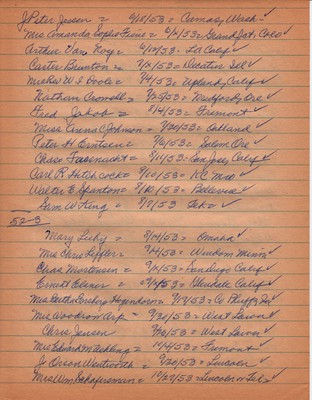 J Peter Jessen = 6/18/53 = Camas, Wash. ✓
Mrs Amanda = 6/2/53 = Grand Jct, Colo ✓
Arthur Van Roy = 6/10/53 = La Calif ✓
Carter Brunton = 7/2/53 = Decatur Ill ✓
Michael W S Poole = 7/4/53 = Upland, Calif ✓
Nathan Crowell = 7/25/53 = Medford, Ore ✓
Fred Jakob = 8/4/53 = Fremont ✓
Miss Emma C Johnson = 7/30/53 = Oakland ✓
Peter H Erntsen = 7/6/53 = Salem Ore ✓
Chas Fasenacht = 7/11/53 = San Jose, Calif ✓
Carl R Hitchcock = 8/10/53 = K.C. Mo ✓
Walter E Spanton = 8/10/53 = Bellevue ✓
Sam W King = 8/9/53 ✓
52-3
Mary Luhy = 8/14/53 = Omaha ✓
Mrs Chris Leffler = 9/2/53 = Windom Minn ✓
Chas Mortensen = 9/11/53 = San Diego Calif ✓
Ernest Ebner = /53 = Glendale Calif ✓
Mrs Bertha = 9/13/53 = Co Bluffs Ia ✓
Mrs Woodrow Arp = 9/30/53 = West Lawn ✓
Chris Jensen 9/26/53 = West Lawn ✓
Mrs Edward = 10/4/53 = Fremont ✓
J Orson Wentworth = 9/20/53 = Lincoln ✓
Mrs Wm Schafersman = 10/29/53 = Lincoln ✓